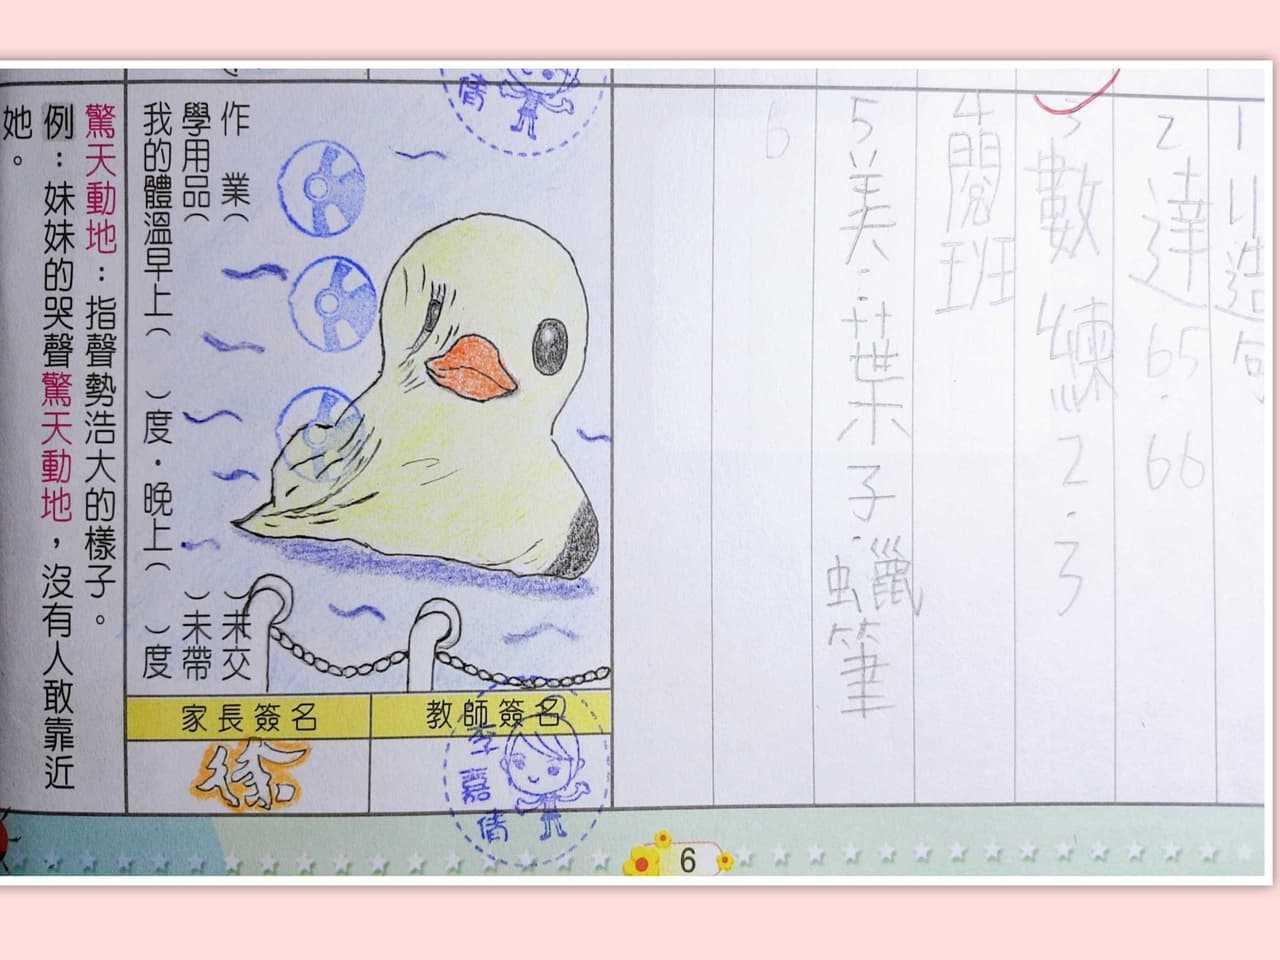 1 小造句
2 達65.66
3 數練2.3
4 閱班
5 美:葉子.蠟筆
6
作業( )未交
學用品( )未帶
我的體溫早上( )度．晚上( )度
家長簽名
教師簽名
徐
李嘉倩
倩
驚天動地：指聲勢浩大的樣子。
例：妹妹的哭聲驚天動地，沒有人敢靠近
她。
6